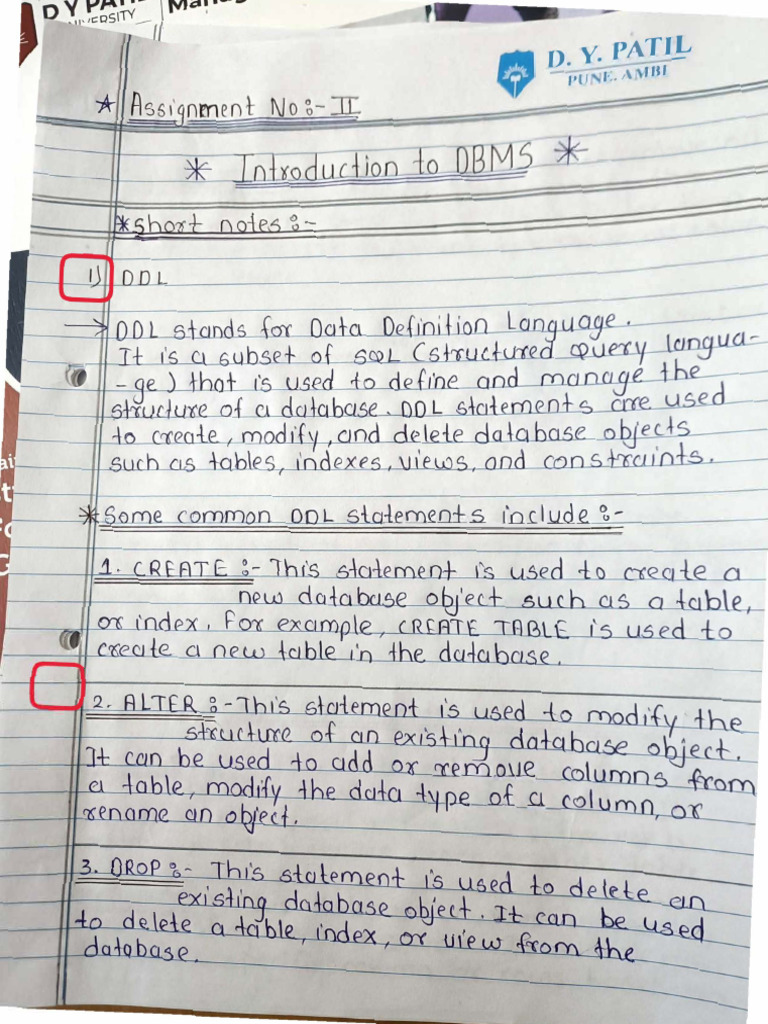 D Y PATIL
UNIVERSITY
D. Y. PATIL
PUNE. AMBI
* Assignment No:- II
* Introduction to DBMS *
* short notes :-
1) DDL
→ DDL stands for Data Definition Language.
It is a subset of SQL (structured Query langua-
-ge) that is used to define and manage the
structure of a database. DDL statements are used
to create, modify, and delete database objects
such as tables, indexes, views, and constraints.
* Some common DDL statements include :-
1. CREATE :- This statement is used to create a
new database object such as a table,
or index. For example, CREATE TABLE is used to
create a new table in the database.
2. ALTER :- This statement is used to modify the
structure of an existing database object.
It can be used to add or remove columns from
a table, modify the data type of a column, or
rename an object.
3. DROP :- This statement is used to delete an
existing database object. It can be used
to delete a table, index, or view from the
database.